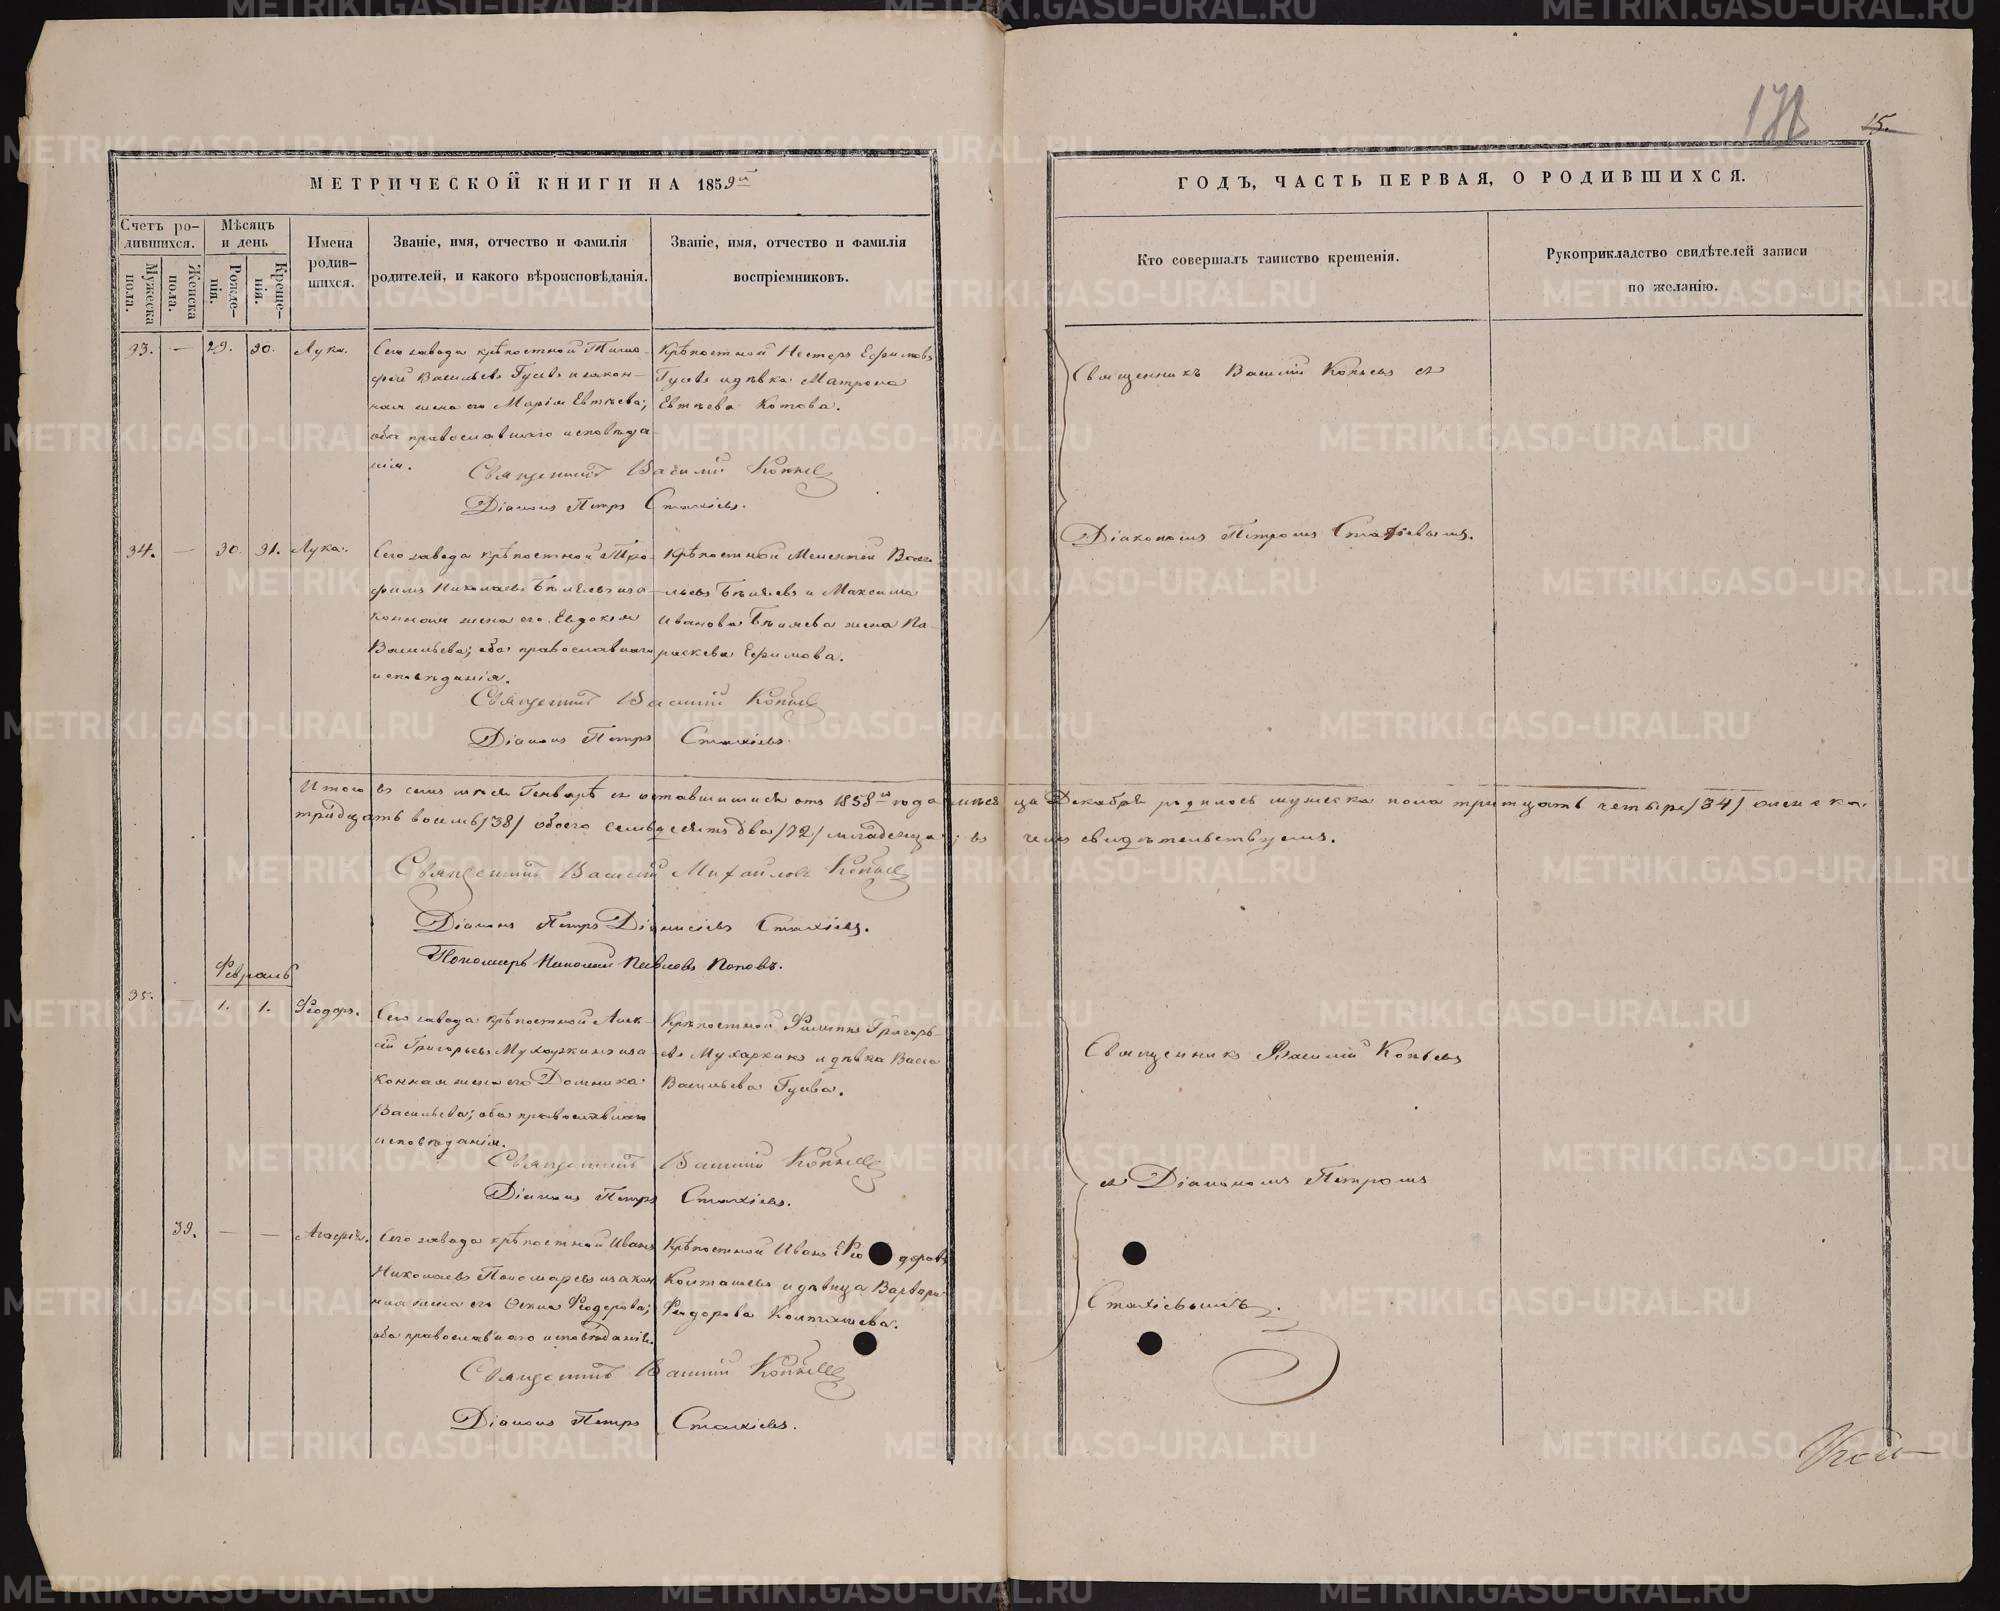 178
15.
МЕТРИЧЕСКОЙ КНИГИ НА 1859й
ГОДЪ, ЧАСТЬ ПЕРВАЯ, О РОДИВШИХСЯ.
Счетъ ро-
дившихся.
Мужеска
пола.
Женска
пола.
Мѣсяцъ
и день
Рожде-
нія.
Креще-
нія.
Имена
родив-
шихся.
Званіе, имя, отчество и фамилія
родителей, и какого вѣроисповѣданія.
Званіе, имя, отчество и фамилія
воспріемниковъ.
Кто совершалъ таинство крещенія.
Рукоприкладство свидѣтелей записи
по желанію.
33. — 29. 30. Лука.
Сего завода крѣпостной Тимо-
фей Васильевъ Гусевъ и закон-
ная жена его Марія Евтѣева;
оба православнаго исповѣда-
нія.
Крѣпостной Нестеръ Ефимовъ
Гусевъ и дѣвка Матрона
Евтѣева Котова.
Священникъ Василій Копьевъ
Діаконъ Петръ Стахіевъ.
Священникъ Василій Копьевъ съ
Діакономъ Петромъ Стахіевымъ.
34. — 30. 31. Лука.
Сего завода крѣпостной Тро-
фимъ Николаевъ Бѣляевъ и за-
конная жена его Евдокія
Васильева; оба православнаго
исповѣданія.
Крѣпостной Мелентій Васи-
льевъ Бѣляевъ и Максима
Иванова Бѣляева жена Па-
раскева Ефимова.
Священникъ Василій Копьевъ
Діаконъ Петръ Стахіевъ.
Итого въ семъ мѣсяцѣ Генварѣ съ оставшимися отъ 1858го года мѣсяца Декабря родилось мужеска пола тритцать четыре /34/ женска
тридцать восемь /38/ обоего семьдесятъ два /72/ младенца; въ чемъ свидѣтельствуемъ.
Священникъ Василій Михайловъ Копьевъ
Діаконъ Петръ Діонисіевъ Стахіевъ.
Пономарь Николай Павловъ Поповъ.
Февраль
35. — 1. 1. Ѳеодоръ.
Сего завода крѣпостной Алек-
сѣй Григорьевъ Мухаркинъ и за-
конная жена его Домника
Васильева; оба православнаго
исповѣданія.
Крѣпостной Филиппъ Григорь-
евъ Мухаркинъ и дѣвка Васса
Васильева Гусева.
Священникъ Василій Копьевъ
Діаконъ Петръ Стахіевъ.
Священникъ Василій Копьевъ
съ Діакономъ Петромъ
Стахіевымъ.
39. — — Агафія.
Сего завода крѣпостной Иванъ
Николаевъ Пономаревъ и закон-
ная жена его Ѳекла Ѳеодорова;
оба православнаго исповѣданія.
Крѣпостной Иванъ Ѳеодоровъ
Колташевъ и дѣвица Варвара
Ѳеодорова Колташева.
Священникъ Василій Копьевъ
Діаконъ Петръ Стахіевъ.
METRIKI.GASO-URAL.RU